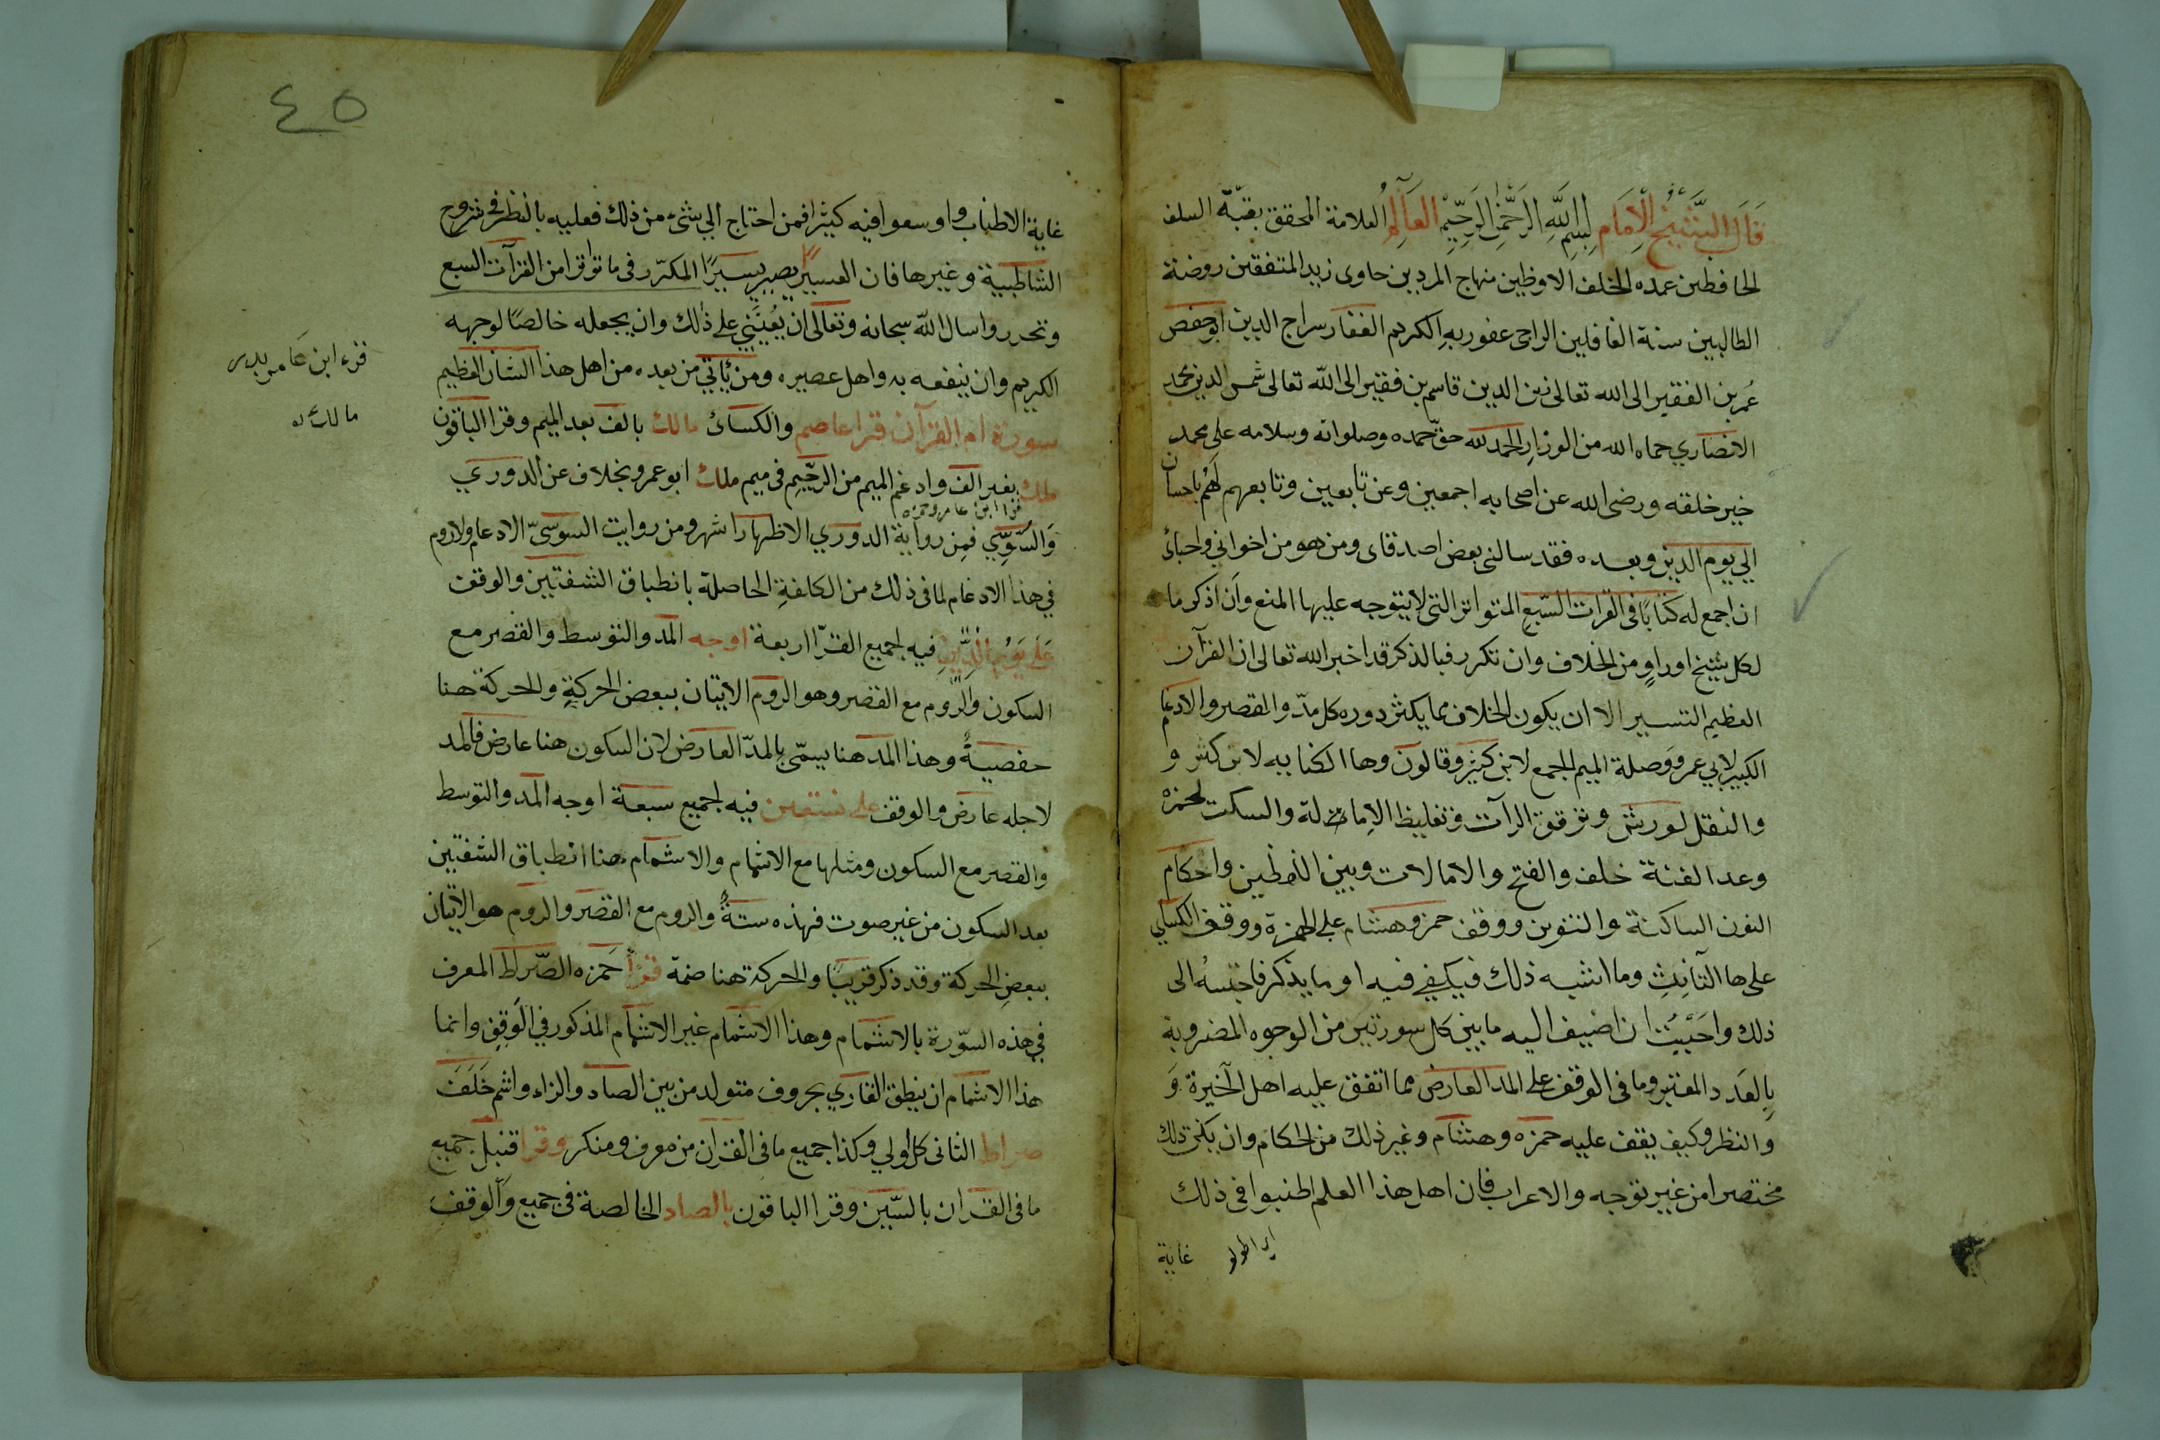 قَالَ الشَّيْخُ الْاِمَام بِسْمِ اللَّهِ الرَّحْمٰنِ الرَّحِيْمِ العَالِمُ العلامة المحقق بقيّة السلف
الحافظين عمده الخلف الاوظين منهاج المردين حاوى زبد المتفقين روضة
الطالبين سنة الغافلين الراجى عفو ربه الكريم الغفار سراج الدين ابو حفص
عُمر بن الفقير الى الله تعالى زين الدين قاسم بن فقير الى الله تعالى شمس الدين محمد
الانصاري حماه الله من الوزار الحمد لله حقّ حمده وصلواته وسلامه على محمد
خير خلقه ورضى الله عن اصحابه اجمعين وعن تابعين وتابعهم لَهُم باحسان
الي يوم الدين وبعده فقد سالنى بعض اصدقاى ومن هو من اخواني واحبائ
ان اجمع له كتابًا فى القرات السّبع المتواتر التى لا يتوجه عليها المنع وَان اذكر ما
لكل شيخ او راوٍ من الخلاف وان تكرر فبالذكر قد اخبر الله تعالى ان القرآن
العظيم التسير الا ان يكون الخلاف مما يكثر دوره كل مدّ والقصر والادغام
الكبير لابي عمر ووصلة الميم الجمع لابن كثير وقالون وها الكنا به لابن كثير و
والنقل لورش وترقق الرآت وتغليظ الامات له والسكت لحمزة
وعد الغنة خلف والفتح والامالات وبين اللفظين واحكام
النون الساكنة والتنوين ووقف حمز وهشام على الهمزة ووقف الكسائي
على ها التآنيث وما اشبه ذلك فيكفي فيه او ما يذكر فاقتسهُ الى
ذلك واحَبَّيْتُ ان اضيف اليه ما بين كل سورتين من الوجوه المضروبة
بِالعَدد المعتبر وما فى الوقف على المد العارض مما اتفق عليه اهل الآخيرة وَ
وَالنظر وكيف يقف عليه حمزه وهشام وغير ذلك من الحكام وان يكن ذلك
مختصرا من غير توجه والاعراب فان اهل هذا العلم اطنبوا فى ذلك
غاية
٤٥
غاية الاطناب واوسعوا فيه كثيرًا فمن احتاج الي شئ من ذلك فعليه بالنظر فى شروح
الشاطبية وغيرها فان العسير يصير يسيرًا المكرّر فى ما تواتر امن القرآت السبع
وتحرر واسال اللّه سبحانه وتعالى ان يُعينَني على ذلك وان يجعله خالصًا لوجهه
الكريم وان ينفعه به واهل عصيره ومن يَاتي من بعده من اهل هذا الشان العظيم
سورة ام القرآن قرا عاصم والكسائ مالك بالف بعد الميم وقرا الباقون
ملك بغير الف وادغم الميم من الرحِّيم فى ميم ملك ابو عمرو بخلاف عن الدوري
قرا ابن عامر وحمزه
وَالسّوسِّي فمن رواية الدوري الاظهار اشهر ومن روايت السوسىّ الادغام ولا روم
في هذا الادغام لما فى ذلك من الكلفةِ الحاصلة بانطباق الشفتين والوقف
عَلى يَوْمِ الدِّيْنِ فيه لجميع القرّا اربعة اوجه المد والتوسط والقصر مع
السكون وَالرّوم مع القصر وهو الروم الاتيان ببعض الحركةٍ والحركة هنا
حفصيةٌ وهذا المد هنا يسمّى بالمدّ العارض لان السكون هنا عارض فالمد
لاجله عارض والوقف على نستعين فيه لجميع سبعة اوجه المد والتوسط
والقصر مع السكون ومثلها مع الاشمام والاشمام هنا انطباق الشفتين
بعد السكون من غير صوت فهذه ستةٌ والروم مع القصر والروم هو الاتيان
ببعض الحركة وقد ذكر قريبًا والحركة هنا ضمة قرأ حمزه الصّراط المعرف
في هذه السوّرة بالاشمام وهذا الاشمام غير الاشمام المذكور في الوقف وانما
هذا الاشمام ان ينطق القاري بحروف متولد من بين الصاد والزاء واشم خَلَفَ
صراط الثانى كل اولي وكذا جميع ما فى القرٰن من معرف ومنكر وقرا قنبل جميع
ما فى القران بالسّين وقرا الباقون بالصاد الخالصة فى جميع وَالوقف
قرء ابن عَامر
مالك